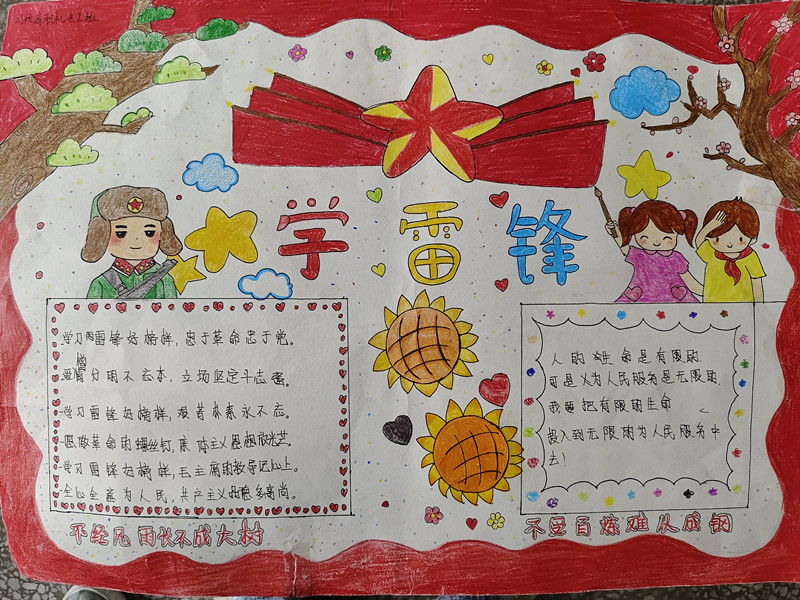 学雷锋
学习雷锋好榜样，忠于革命忠于党。
爱憎分明不忘本，立场坚定斗志强。
学习雷锋好榜样，艰苦朴素永不忘。
愿做革命的螺丝钉，集体主义思想放光芒。
学习雷锋好榜样，毛主席的教导记心上。
全心全意为人民，共产主义品德多高尚。
人的生命是有限的
可是为人民服务是无限的
我要把有限的生命
投入到无限的为人民服务中
去！
不经风雨长不成大树
不受百炼难以成钢